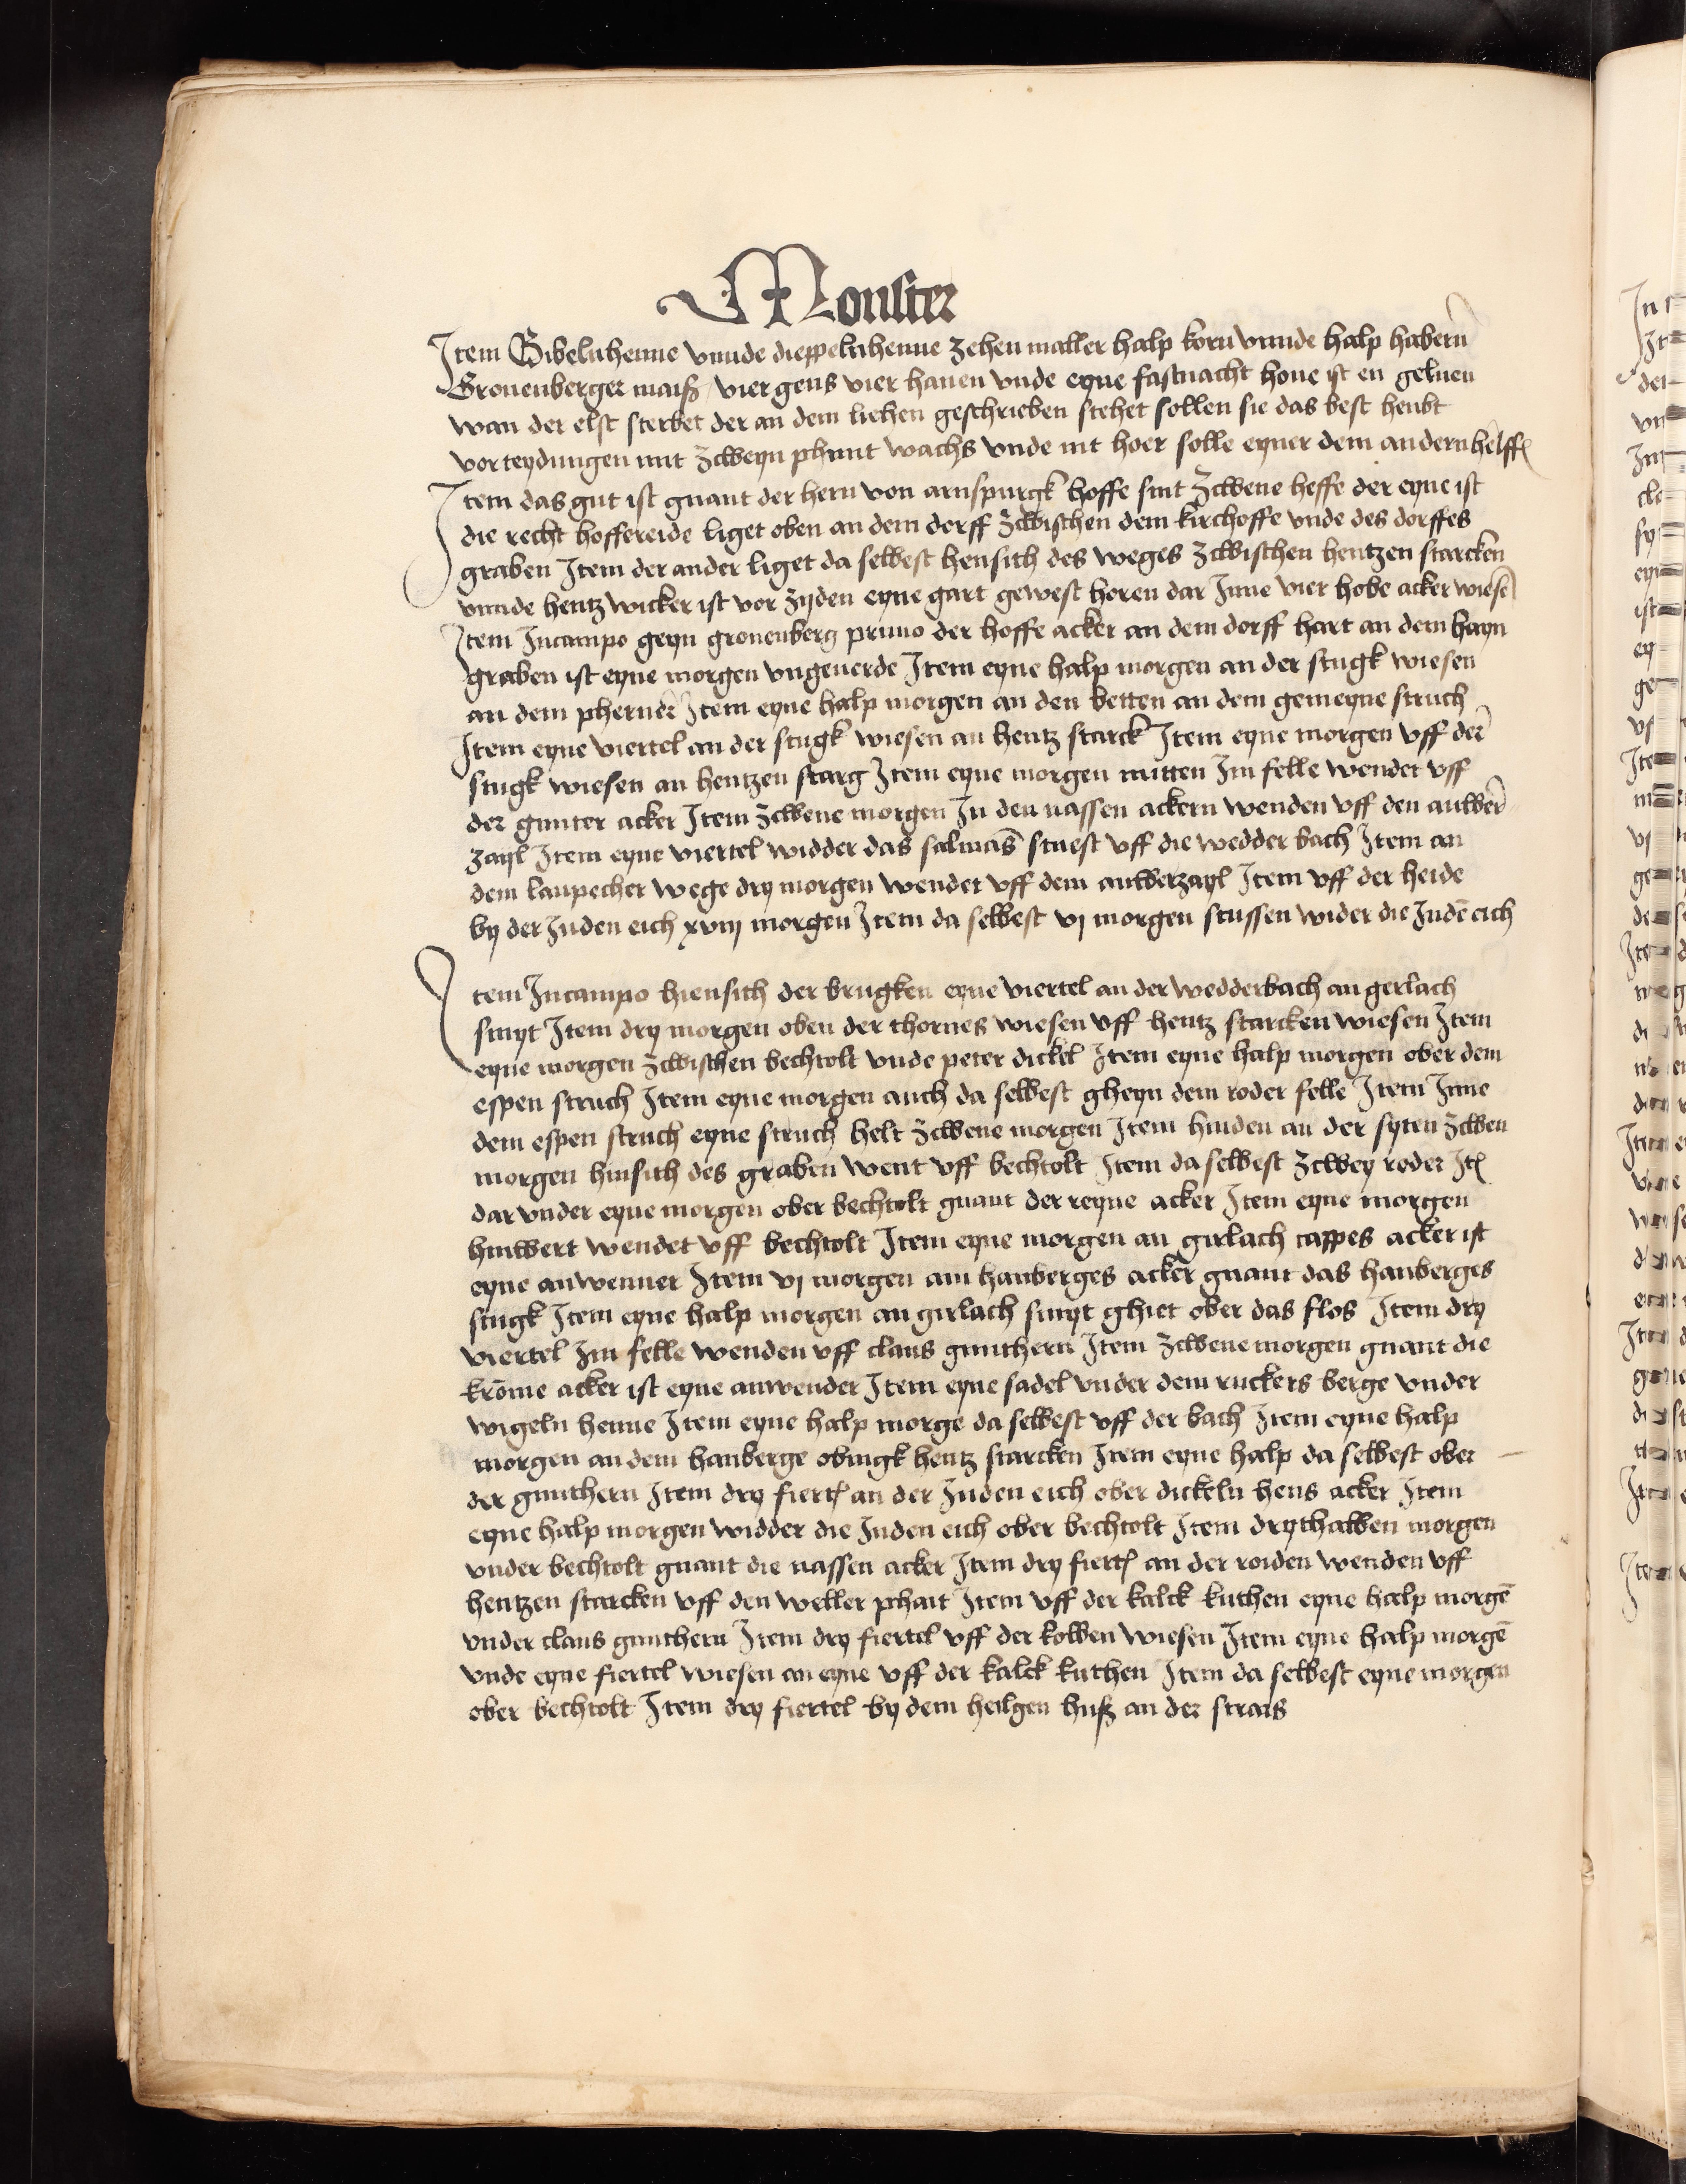 Monster
Item Gibelnhenne vnnde dieppelnhenne zehen malter halp korn vnnde halp habern
Gronenberger maiß vier gens vier hanen vnde eyne fastnacht hone ist en geluen
wan der elst sterbet der an dem liehen geschrieben stehet sollen sie das best heubt
vorteydungen mit zcweyn phunt wachs vnde nit hoer solle eyner dem andern helff
Item das gut ist gnant der hern von arnspurgk hoffe sint zcwene heffe der eyne ist
die recht hoffereide liget oben an dem derff zcwischen dem kirchoffe vnde des dorffes
graben Item der ander liget da selbest hensith des weges zcwischen hentzen starcken
vnnde hentz wicker ist vor zyden eyne gart gewest horen dar Inne vier hobe acker wiesē
Item Incampo geyn gronenberg primo der hoffe acker an dem dorff hart an dem hayn
graben ist eyne morgen vngeuerde Item eyne halp morgen an der stugk wiesen
an dem phernd Item eyne halp morgen an den betten an dem gemeyne struch
Item eyne viertel an der stugk wiesen an hentz starck Item eyne morgen vff der
stugk wiesen an hentzen starg Item eyne morgen mitten Im felle wendet vff
der gunter acker Item zcwene morgen In den nassen ackern wenden vff den antwer
zayl Item eyne viertel widder das salmās stuest vff die wedder bach Item an
dem laupecher wege dry morgen wendet vff dem antwerzayl Item vff der heide
by der Juden eich xviij morgen Item da selbest vj morgen stussen wider die Judē eich
Item Incampo hiensith der brugken eyne viertel an der wedderbach an gerlach
smyt Item dry morgen oben der thornes wiesen vff hentz starcken wiesen Item
eyne morgen zcwischen bechtolt vnde peter dickel Item eyne halp morgen ober dem
espen struch Item eyne morgen auch da selbest gheyn dem roder felle Item Inne
dem espen struch eyne struch helt zcwene morgen Item hinden an der syten zcwen
morgen hinsith des graben went vff bechtolt Item da selbest zcwey roder It
dar vnder eyne morgen ober bechtolt gnant der reyne acker Item eyne morgen
hinwert wendet vff bechtolt Item eyne morgen an girlach cappes acker ist
eyne anwenner Item vj morgen am hanberges acker gnant das hanberges
stugk Item eyne halp morgen an girlach smyt ghiet ober das flos Item dry
viertel Im felle wenden vff claus gunthern Item zcwene morgen gnant die
krōme acker ist eyne anwender Item eyne sadel vnder dem ruckers berge vnder
wigeln henne Item eyne halp morge da selbest vff der bach Item eyne halp
morgen an dem hanberge obingk hentz starcken Item eyne halp da selbest ober
der gunthern Item dry fiert an der Juden eich ober dickeln hens acker Item
eyne halp morgen widder die Juden eich ober bechtolt Item drythalben morgen
vnder bechtolt gnant die nassen acker Item dry fiert an der roiden wenden vff
hentzen starcken vff den weller phait Item vff der kalck kuthen eyne halp morgē
vnder claus gunthern Item dry fiertel vff der kolben wiesen Item eyne halp morgē
vnde eyne fiertel wiesen an eyne vff der kalck kuthen Item da selbest eyne morgen
ober bechtolt Item dry fiertel by dem heilgen huß an der strais